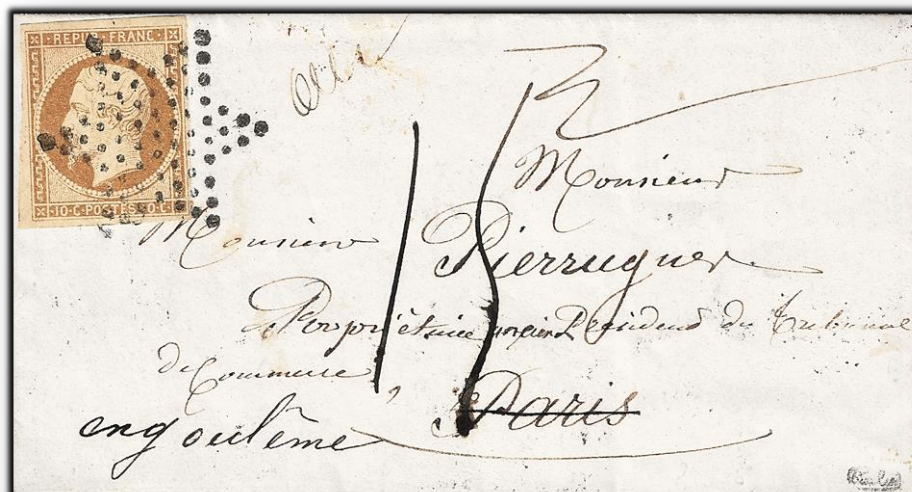 REPUB. FRANC.
10. C. POSTES 10. C.
15
Monsieur
Monsieur Pierrugues
Propriétaire ancien Président du Tribunal
de Commerce
Paris
engoulême